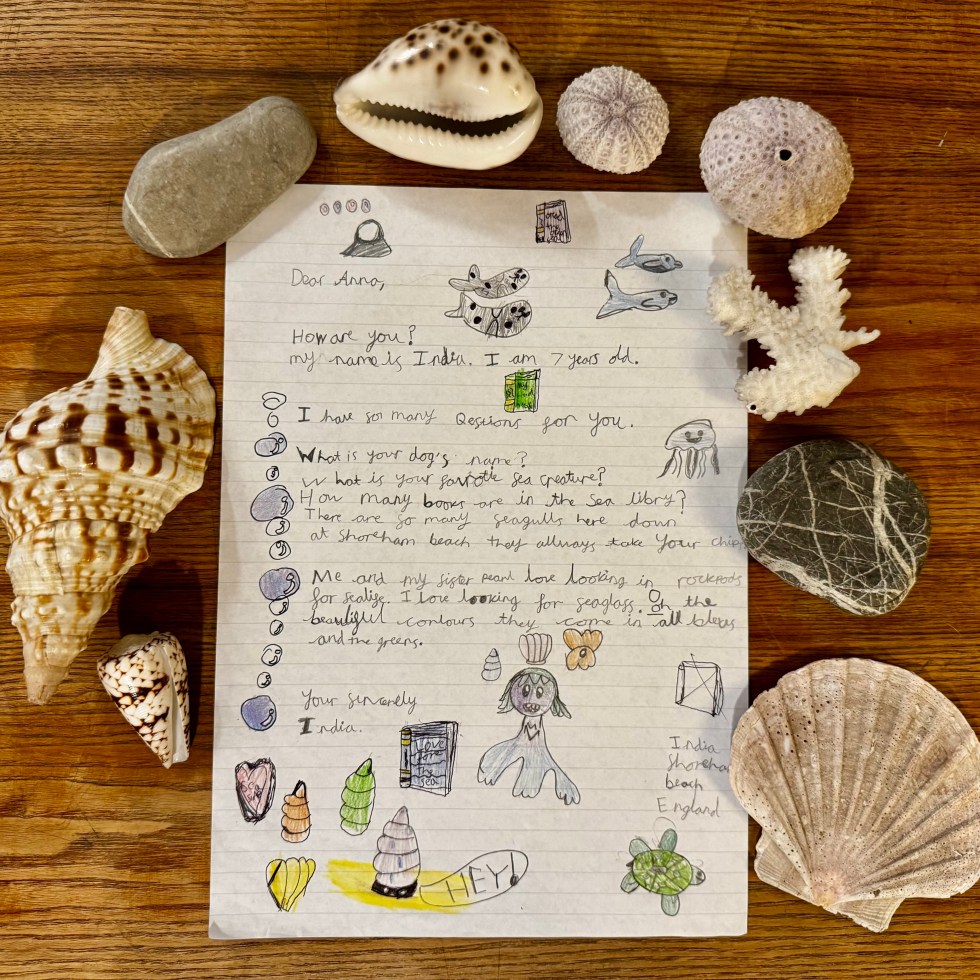 Dear Anna,
How are you?
my name is India. I am 7 years old.
I have so many Qestions for you.
What is your dog's name?
what is your favrotle sea creature?
How many books are in the sea library?
There are so many seagulls here down
at Shoreham beach they allways take your chips
Me and my sister pearl love looking in rockpools
for sealife. I love looking for seaglass. Oh the
beautiful contours they come in all blews
and the greens.
Your sincerely
India.
Love
fore
the
sea
India
Shoreham
beach
England
HEY!